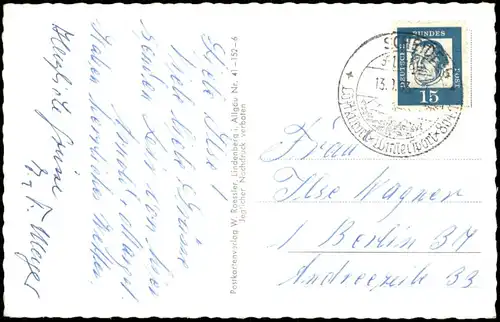 Liebe Ilse!
Viele liebe Grüsse
senden Dir von hier
Haben herrliches Wetter.
Herzlichst
Postkartenverlag W. Roessler, Lindenberg i. Allgäu Nr. 41-152-6
Jeglicher Nachdruck verboten
SCHEIDEGG
13.
Luftkurort · Wintersport
DEUTSCHE BUNDESPOST
15
Frau
Ilse Wagner
1 Berlin 37
Andreezeile 33